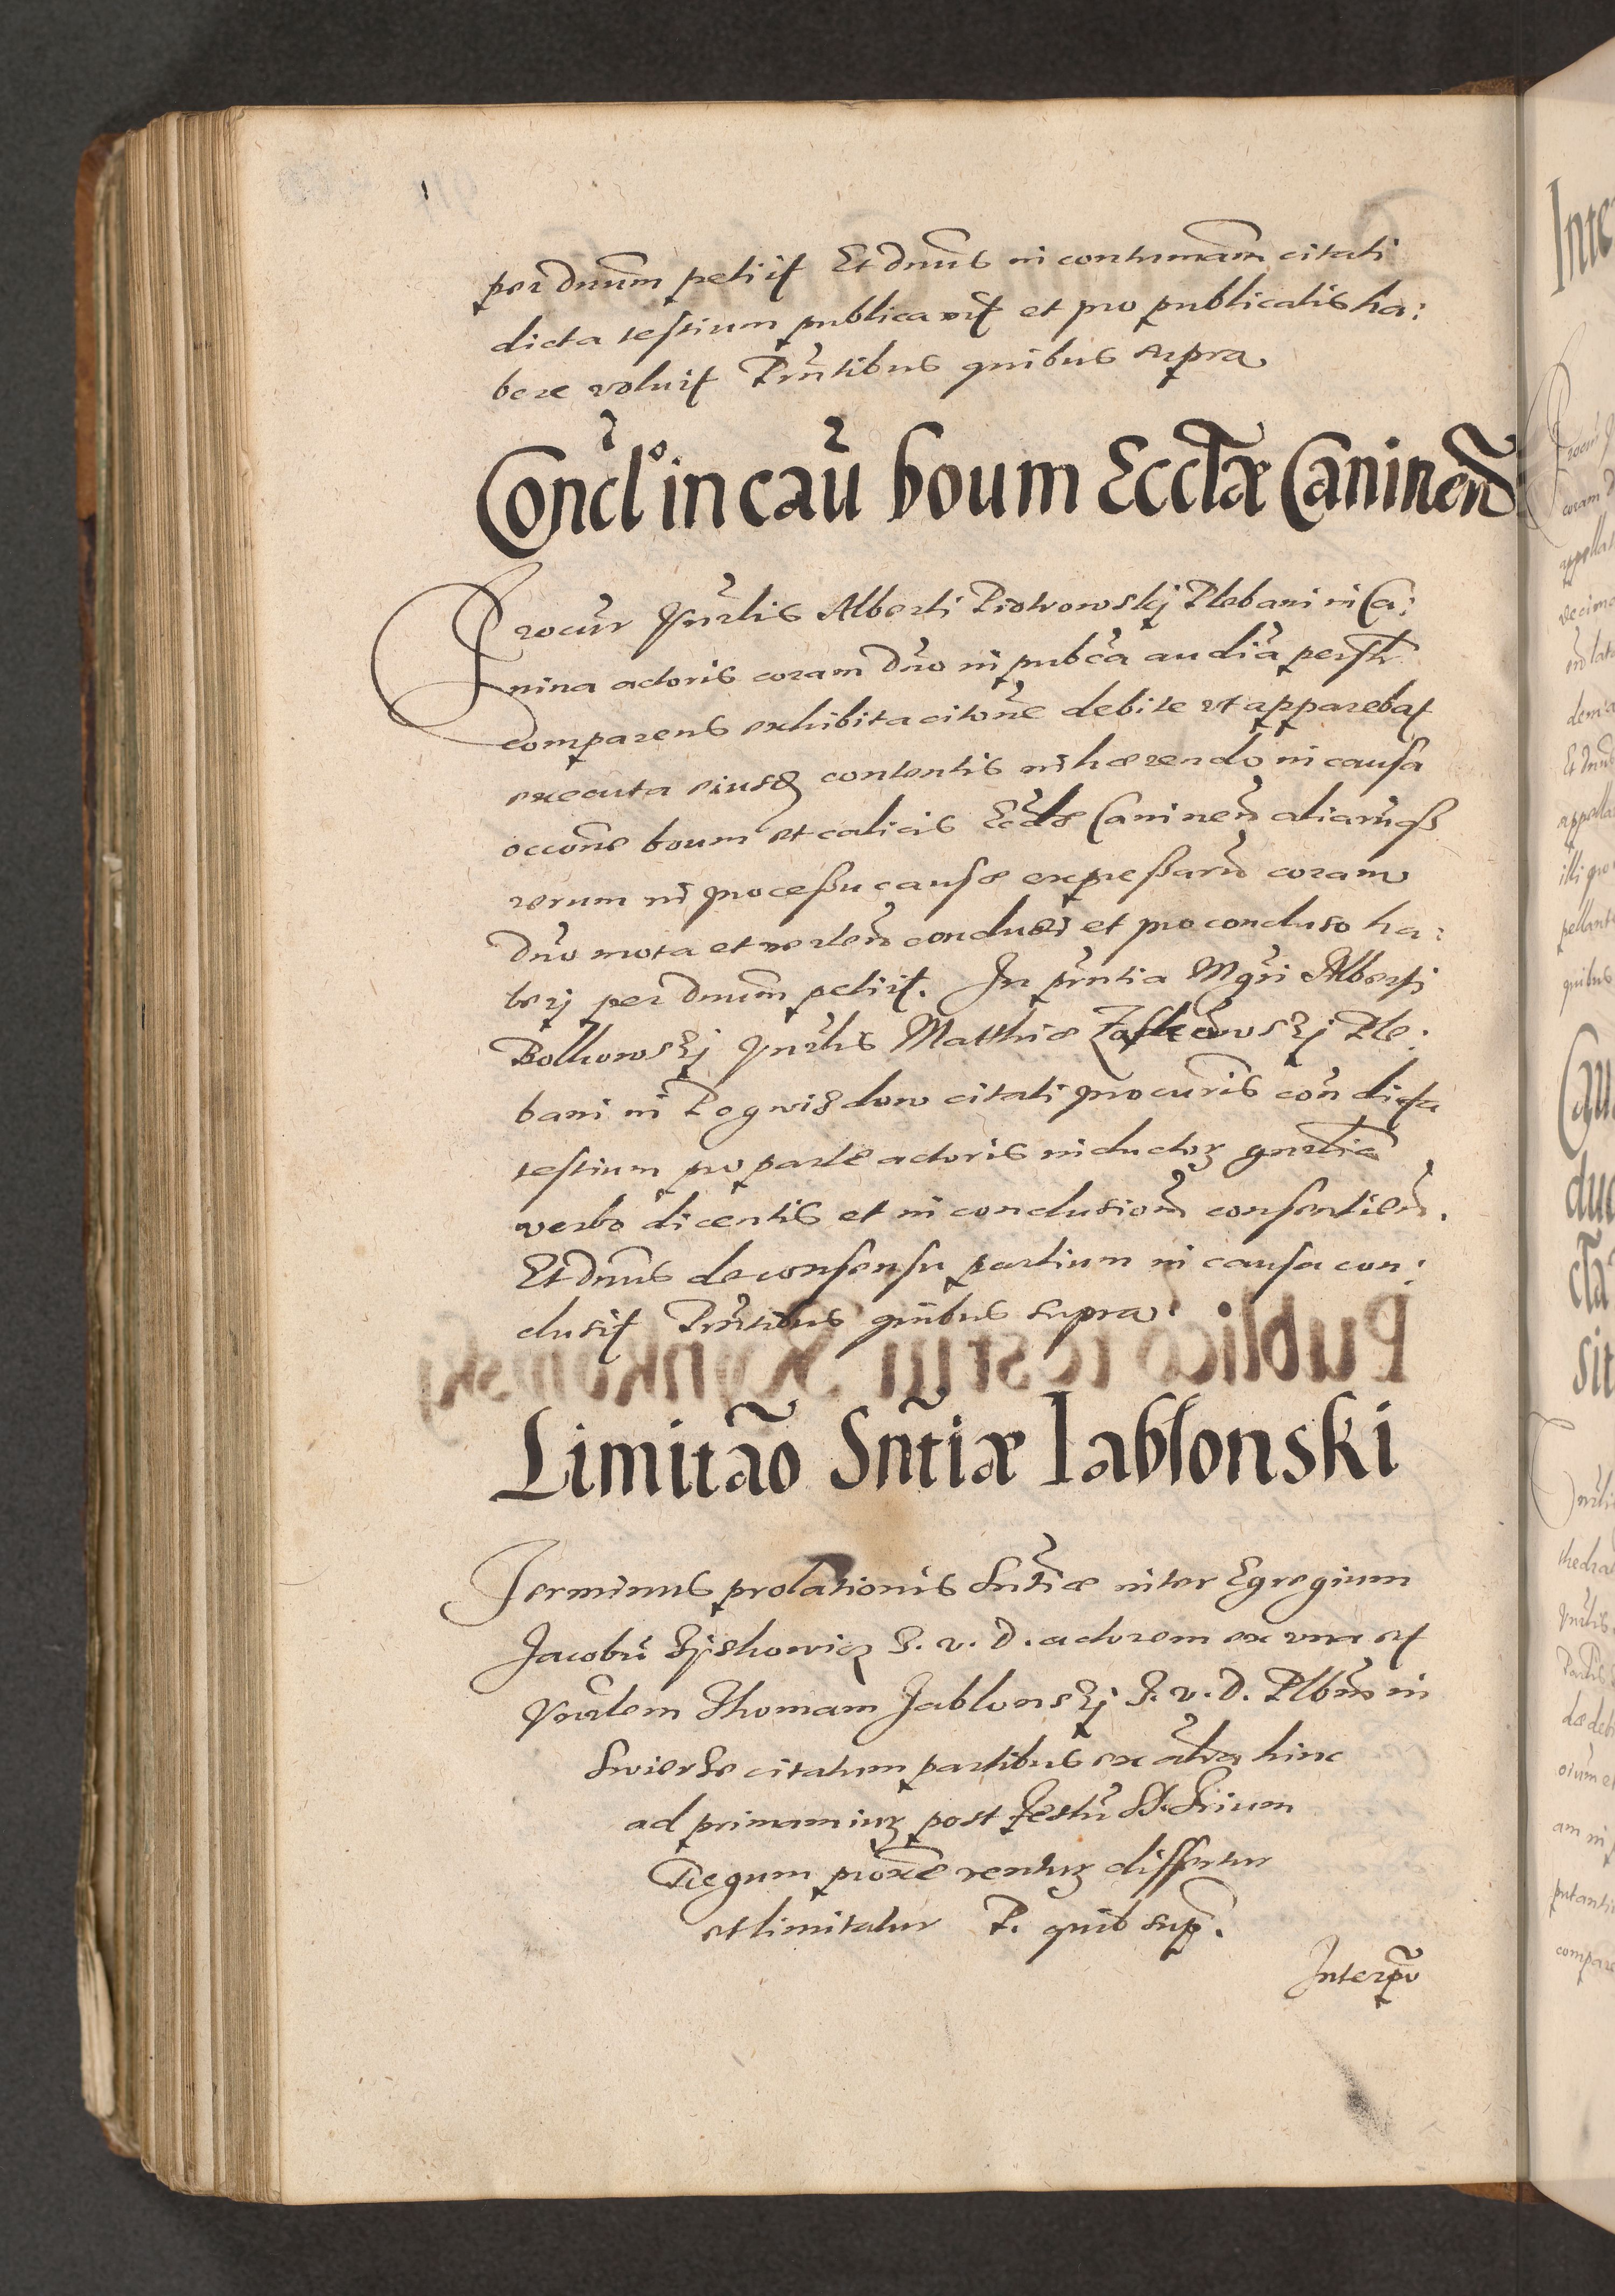 per dnum petiit Et dnus in contumam citati
dicta testium publicavit et pro publicatis ha:
bere voluit Prntibus quibus supra
Concl° in cau boum Ecclæ Caninen
Procur Vnrlis Alberti Piotrowskj Plebani in Ca:
nina actoris coram dno in pubca audia persl
comparens exhibita citone debite vt apparebat
executa eiusq contentis inhærendo in causa
occone boum et calicis Ecclæ Caninen aliarūqȝ
rerum in processu causæ expressarū coram
dno mota et verten concludi et pro concluso ha:
berj per dnum petiit. In prntia Mgri Alberti
Bolkowskj Vnrlis Matthiæ Ple:
bani in Pogwisdow citati procuris con dicta
testium pro parte actoris inductoȝ gnrlia
verbo dicentis et in conclusionē consentien.
Et dnus de consensu partium in causa con:
clusit Prntibus quibus supra
Limitāo Sntiæ Iablonski
Terminus prolationis Sntiæ inter Egregium
Jacobū I. v. D. actorem ex vna et
Vnrlem Thomam Jablonskj I. v. D. Plbnm in
citatum partibus ex altera hinc
ad primam iuȝ post Festū St. Trium
Regum proxe ventuȝ differtur
et limitatur P. quib sup.
Interpo